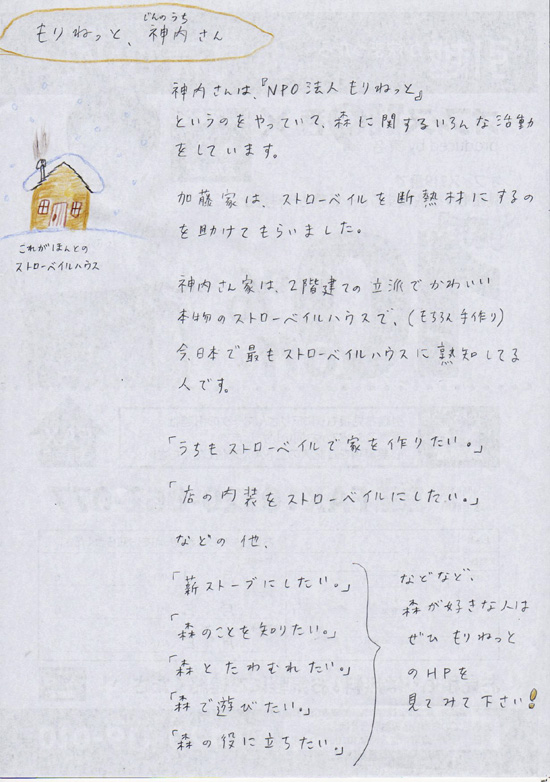 もりねっと、神内さん
じんのうち
神内さんは、『NPO法人もりねっと』
というのをやっていて、森に関するいろんな活動
をしています。
加藤家は、ストローベイルを断熱材にするの
を助けてもらいました。
これがほんとの
ストローベイルハウス
神内さん家は、2階建ての立派でかわいい
本物のストローベイルハウスで、(もちろん手作り)
今、日本で最もストローベイルハウスに熟知してる
人です。
「うちもストローベイルで家を作りたい。」
「店の内装をストローベイルにしたい。」
などの他、
「薪ストーブにしたい。」
「森のことを知りたい。」
「森とたわむれたい。」
「森で遊びたい。」
「森の役に立ちたい。」
などなど、
森が好きな人は
ぜひもりねっと
のHPを
見てみて下さい!